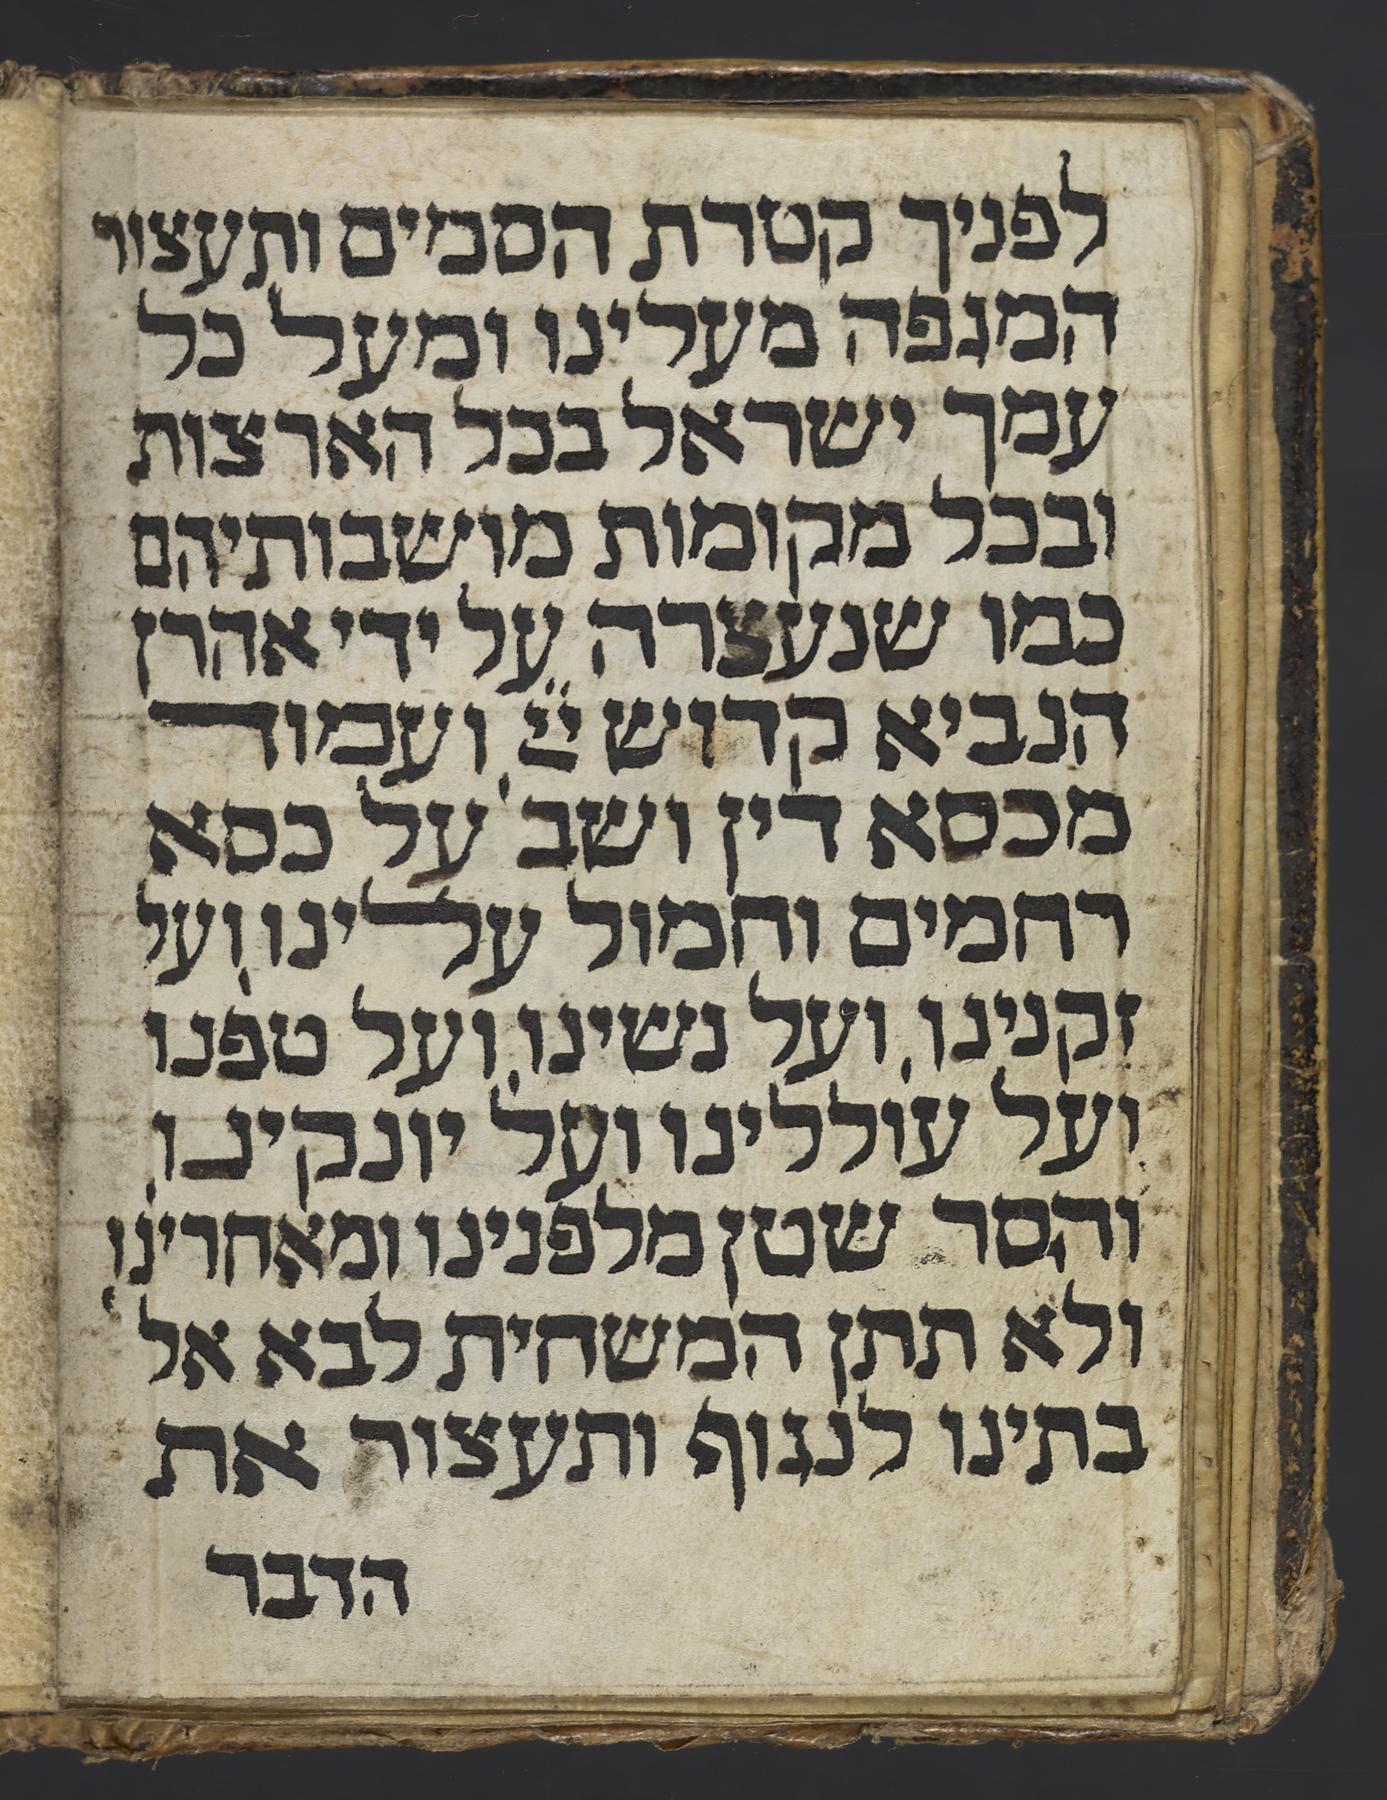 לפניך קטרת הסמים ותעצור
המגפה מעלינו ומעל כל
עמך ישראל בכל הארצות
ובכל מקומות מושבותיהם
כמו שנעצרה על ידי אהרן
הנביא קדוש יי ועמוד
מכסא דין ושב על כסא
רחמים וחמול עלינו ועל
זקנינו ועל נשינו ועל טפנו
ועל עוללינו ועל יונקינו
והסר שטן מלפנינו ומאחרינו
ולא תתן המשחית לבא אל
בתינו לנגוף ותעצור את
הדבר